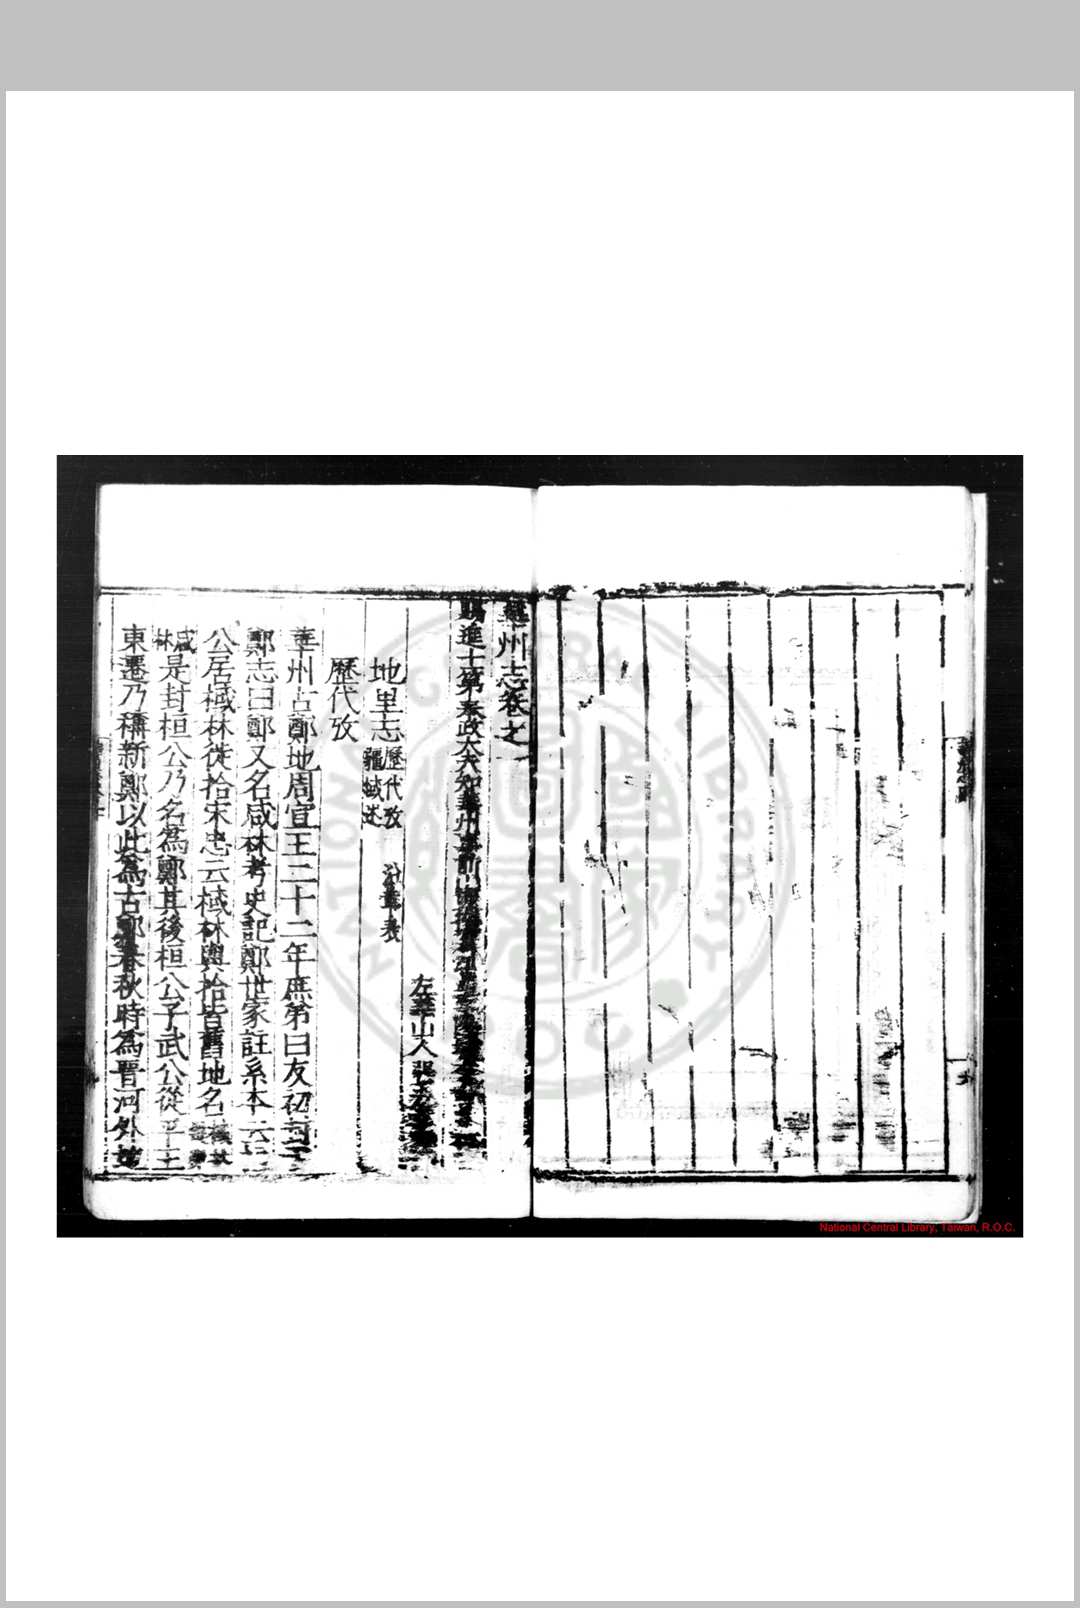 華州志卷之一
賜進士第奉政大夫知華州事前
左華山人
地里志 歷代攷 沿革表
疆域述
歷代攷
華州古鄭地周宣王二十二年庶弟曰友初封于
鄭志曰鄭又名咸林考史記鄭世家註系本云桓
公居棫林徙拾宋忠云棫林與拾皆舊地名
咸林是封桓公乃名為鄭其後桓公子武公從平王
東遷乃稱新鄭以此為古鄭春秋時為晉河外
National Central Library, Taiwan, R.O.C.